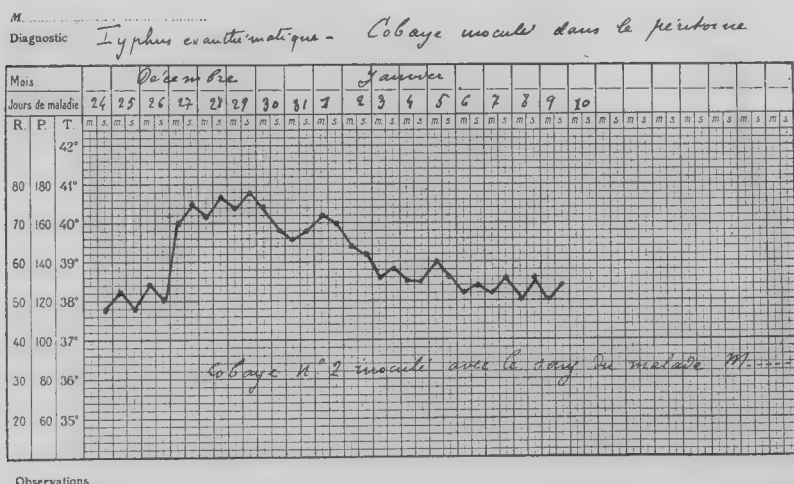 M.
Diagnostic Typhus exanthématique - Cobaye inoculé dans le péritoine
Mois Décembre Janvier
Jours de maladie 24 25 26 27 28 29 30 31 1 2 3 4 5 6 7 8 9 10
R. P. T. m. s. m. s. m. s. m. s. m. s. m. s. m. s. m. s. m. s. m. s. m. s. m. s. m. s. m. s. m. s. m. s. m. s. m. s. m. s. m. s. m. s. m. s. m. s. m. s.
42°
80 180 41°
70 160 40°
60 140 39°
50 120 38°
40 100 37°
Cobaye n° 2 inoculé avec le sang du malade M.....
30 80 36°
20 60 35°
Observations